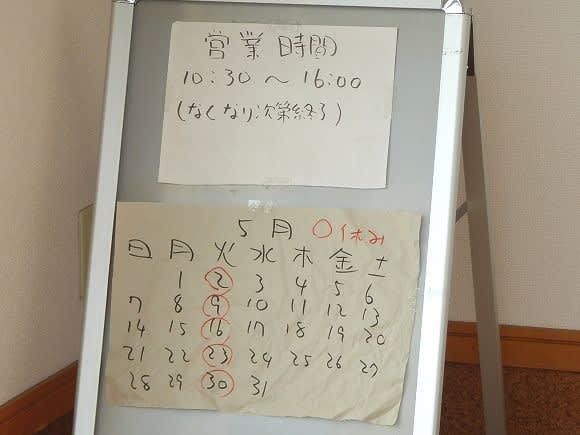 営業時間
10:30～16:00
(なくなり次第終了)
5月 ○休み
日 月 火 水 木 金 土
1 2 3 4 5 6
7 8 9 10 11 12 13
14 15 16 17 18 19 20
21 22 23 24 25 26 27
28 29 30 31